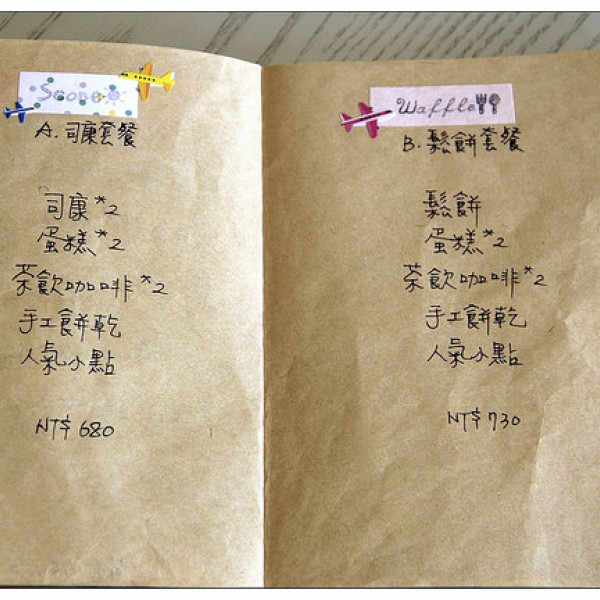 Scone
A.司康套餐
司康*2
蛋糕*2
茶飲咖啡*2
手工餅乾
人氣小點
NT$ 680
Waffle
B.鬆餅套餐
鬆餅
蛋糕*2
茶飲咖啡*2
手工餅乾
人氣小點
NT$ 730